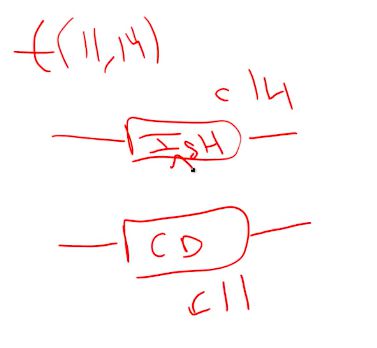 t(11,14)
c 14
ISH
CD
c 11